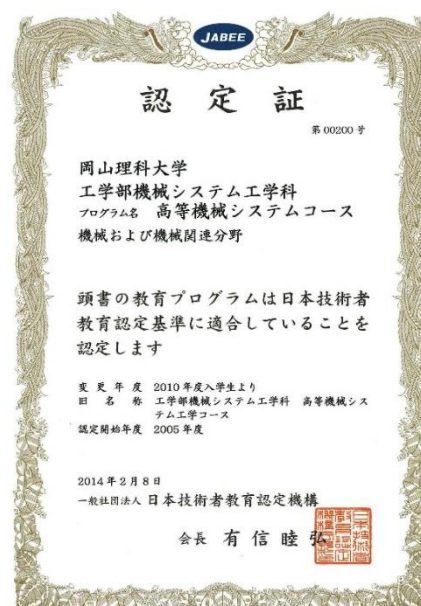 JABEE
認定証
第 00200 号
岡山理科大学
工学部機械システム工学科
プログラム名 高等機械システムコース
機械および機械関連分野
頭書の教育プログラムは日本技術者
教育認定基準に適合していることを
認定します
変更年度 2010年度入学生より
旧名称 工学部機械システム工学科 高等機械シス
テム工学コース
認定開始年度 2005年度
2014年2月8日
一般社団法人 日本技術者教育認定機構
会長 有信睦弘